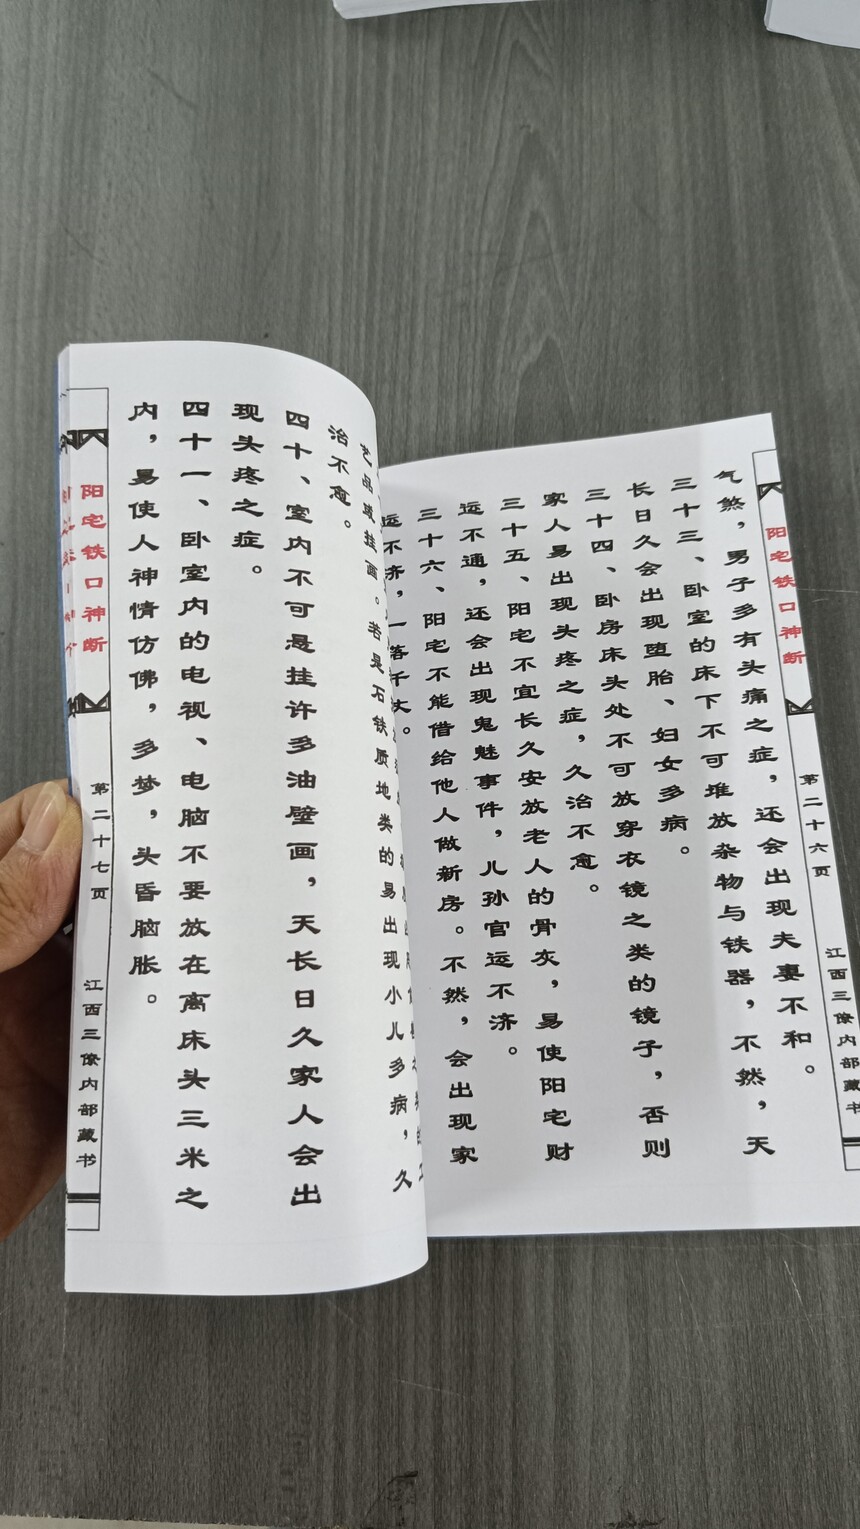 阳宅铁口神断
第二十六页
江西三僚内部藏书
气煞，男子多有头痛之症，还会出现夫妻不和。
三十三、卧室的床下不可堆放杂物与铁器，不然，天
长日久会出现堕胎、妇女多病。
三十四、卧房床头处不可放穿衣镜之类的镜子，否则
家人易出现头疼之症，久治不愈。
三十五、阳宅不宜长久安放老人的骨灰，易使阳宅财
运不通，还会出现鬼魅事件，儿孙官运不济。
三十六、阳宅不能借给他人做新房。不然，会出现家
运不济，一落千丈。
艺品或挂画。若是石铁质地类的易出现小儿多病，久
治不愈。
四十、室内不可悬挂许多油壁画，天长日久家人会出
现头疼之症。
四十一、卧室内的电视、电脑不要放在离床头三米之
内，易使人神情仿佛，多梦，头昏脑胀。
阳宅铁口神断
第二十七页
江西三僚内部藏书